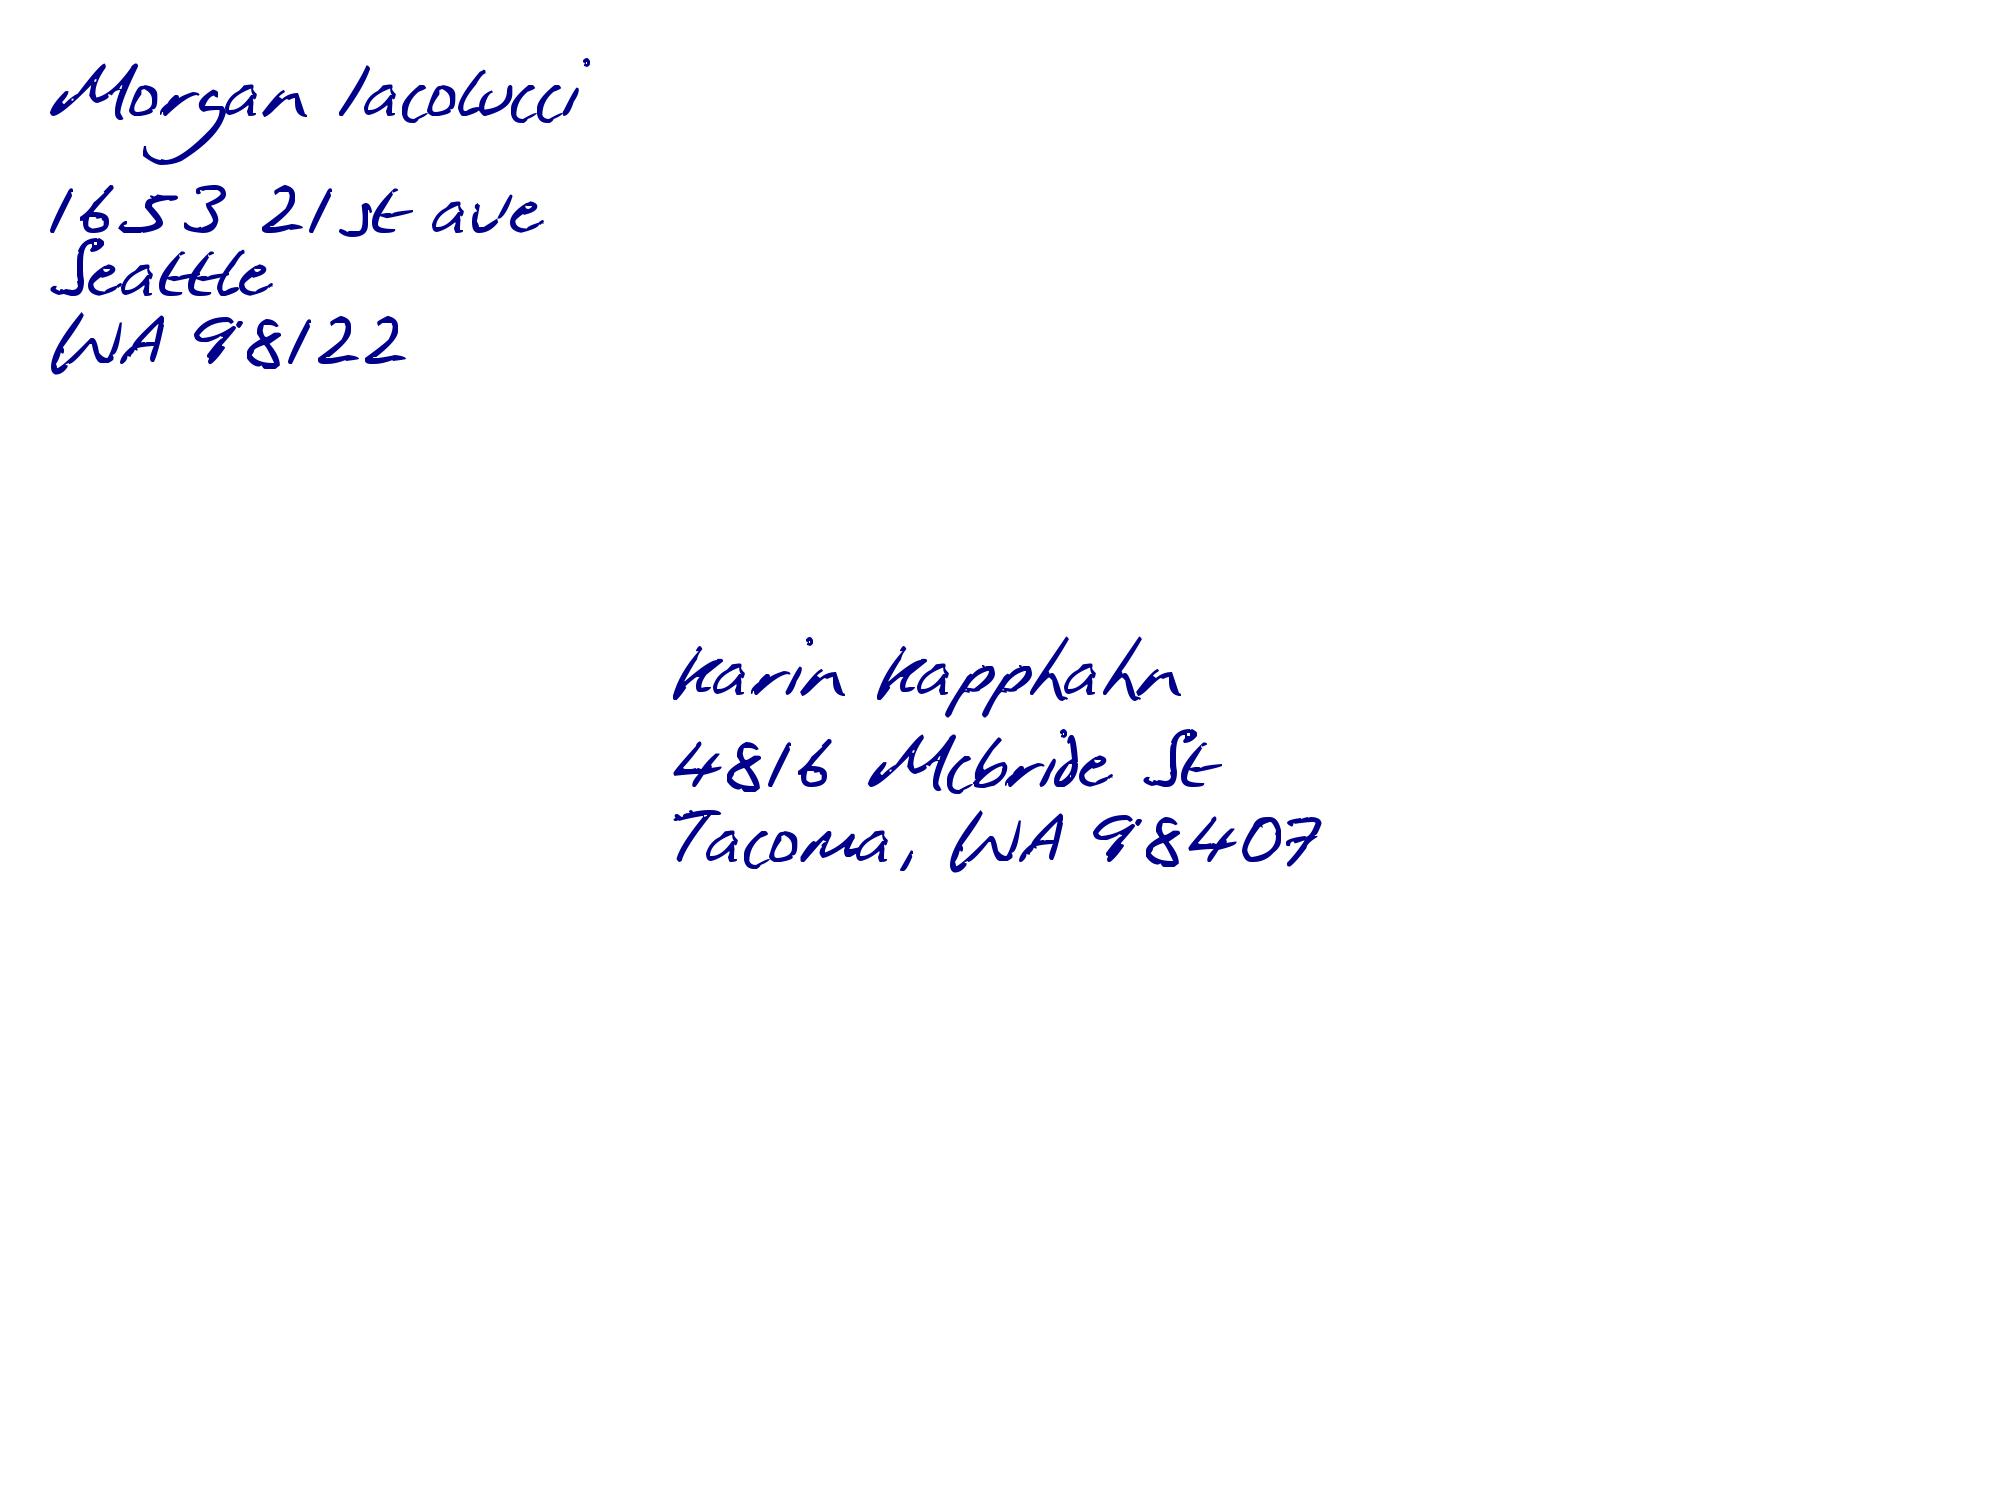 Morgan Iacolucci
1653 21st ave
Seattle
WA 98122
Karin Kapphahn
4816 Mcbride St
Tacoma, WA 98407